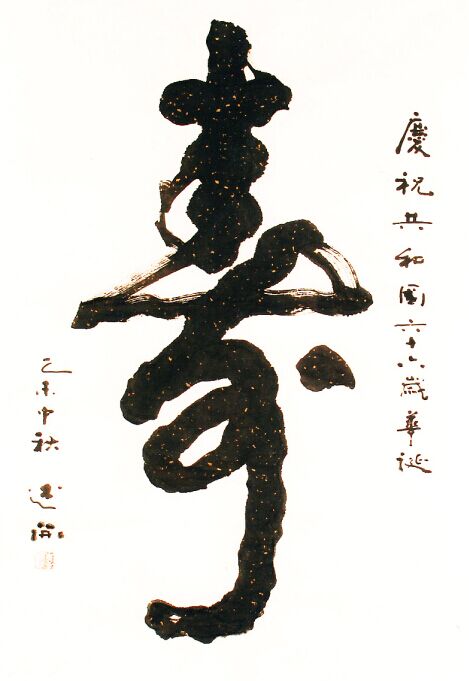 慶祝共和國六十六歲華誕
寿
乙未中秋